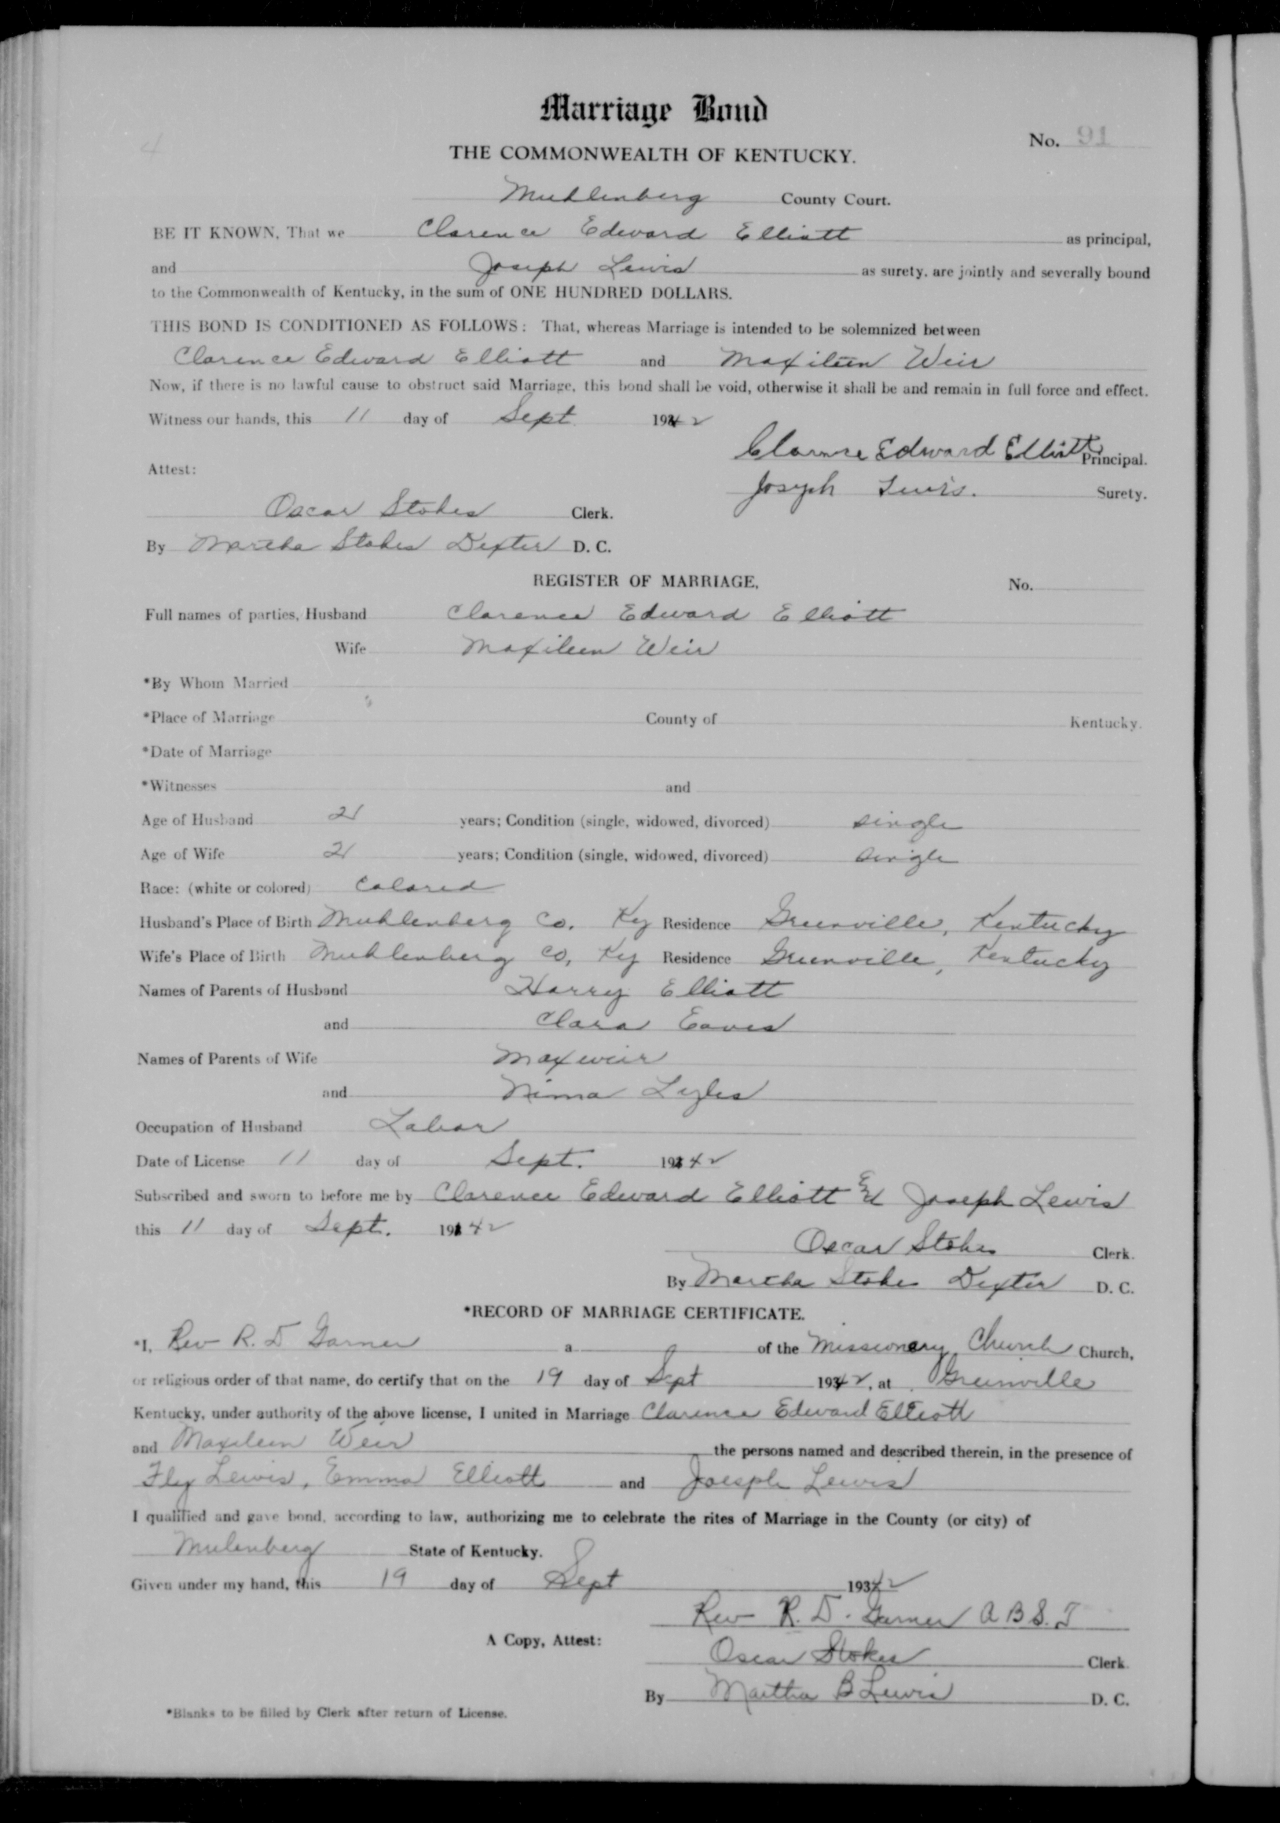 Marriage Bond
No. 91
THE COMMONWEALTH OF KENTUCKY.
Muhlenberg County Court.
BE IT KNOWN, That we Clarence Edward Elliott as principal,
and Joseph Lewis as surety, are jointly and severally bound
to the Commonwealth of Kentucky, in the sum of ONE HUNDRED DOLLARS.
THIS BOND IS CONDITIONED AS FOLLOWS: That, whereas Marriage is intended to be solemnized between
Clarence Edward Elliott and Maxileen Weir
Now, if there is no lawful cause to obstruct said Marriage, this bond shall be void, otherwise it shall be and remain in full force and effect.
Witness our hands, this 11 day of Sept 1942
Clarence Edward Elliott Principal.
Attest:
Joseph Lewis. Surety.
Oscar Stokes Clerk.
By Martha Stokes Dexter D. C.
REGISTER OF MARRIAGE. No.
Full names of parties, Husband Clarence Edward Elliott
Wife Maxileen Weir
*By Whom Married
*Place of Marriage County of Kentucky.
*Date of Marriage
*Witnesses and
Age of Husband 21 years; Condition (single, widowed, divorced) single
Age of Wife 21 years; Condition (single, widowed, divorced) single
Race: (white or colored) Colored
Husband's Place of Birth Muhlenberg Co. Ky Residence Greenville, Kentucky
Wife's Place of Birth Muhlenberg Co, Ky Residence Greenville, Kentucky
Names of Parents of Husband Harry Elliott
and Clara Eaves
Names of Parents of Wife Max weir
and Nima Lyles
Occupation of Husband Labor
Date of License 11 day of Sept. 1942
Subscribed and sworn to before me by Clarence Edward Elliott & Joseph Lewis
this 11 day of Sept. 1942
Oscar Stokes Clerk.
By Martha Stokes Dexter D. C.
*RECORD OF MARRIAGE CERTIFICATE.
*I, Rev R. D Garner a of the Missionary Church Church,
or religious order of that name, do certify that on the 19 day of Sept 1942, at Greinville
Kentucky, under authority of the above license, I united in Marriage Clarence Edward Elliott
and Maxileen Weir the persons named and described therein, in the presence of
Fly Lewis, Emma Elliott and Joesph Lewis
I qualified and gave bond, according to law, authorizing me to celebrate the rites of Marriage in the County (or city) of
Mulenberg State of Kentucky.
Given under my hand, this 19 day of Sept 1942
Rev R. D. Garner A B S. T
A Copy, Attest:
Oscar Stokes Clerk.
By Martha B Lewis D. C.
*Blanks to be filled by Clerk after return of License.